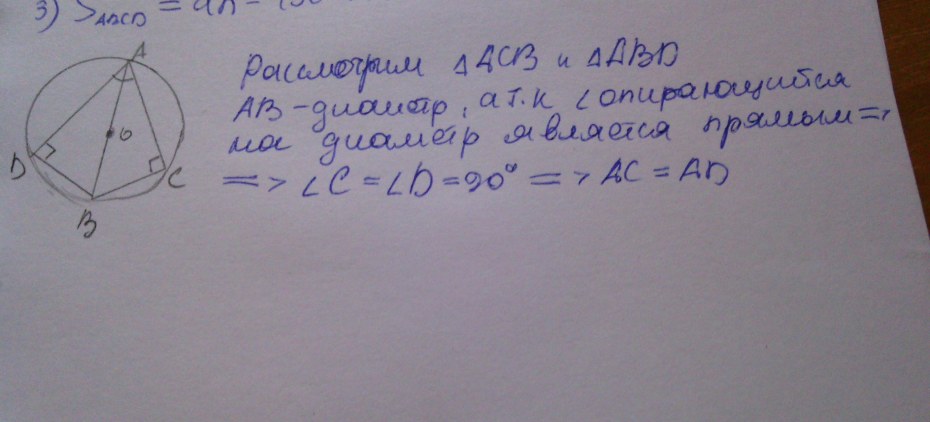 3) S ABCD = ah
A
Рассмотрим △ACB и △ABD
AB-диаметр, а т.к ∠опирающийся
на диаметр является прямым =>
=> ∠C = ∠D = 90° => AC = AD
D
C
B